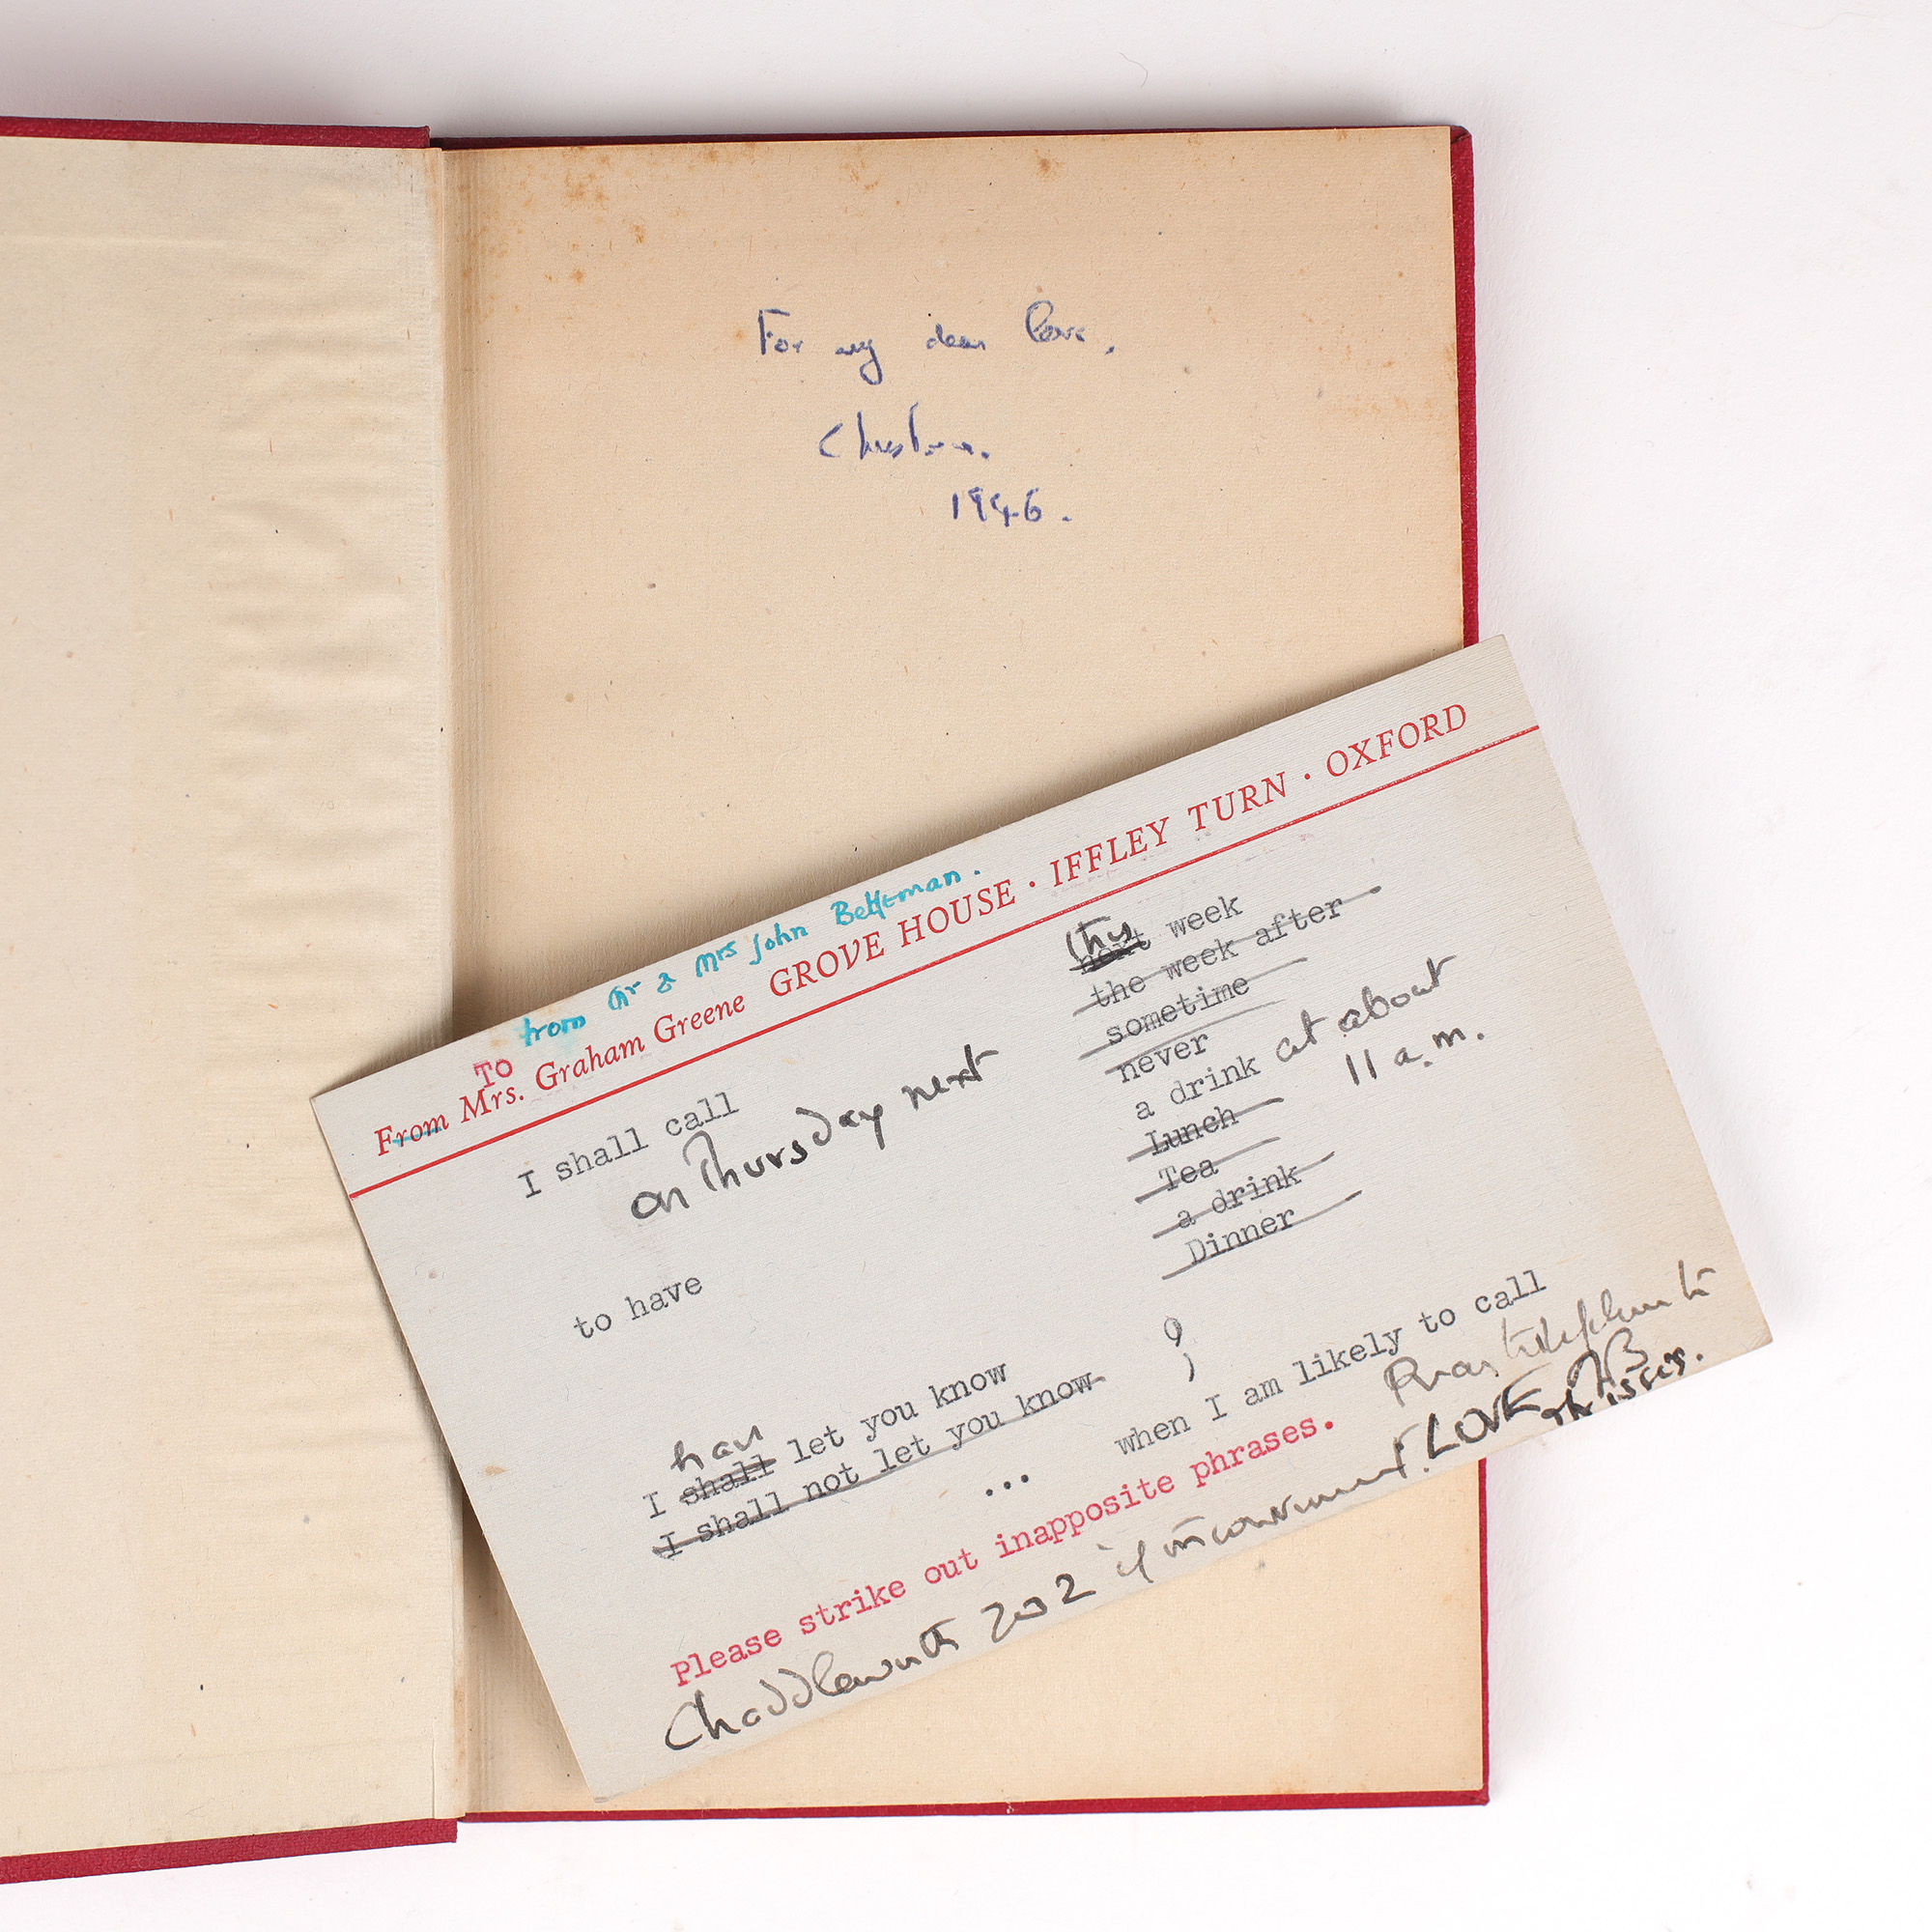 For my dear love,
1946.
from Mr & Mrs John Betjeman.
TO
From Mrs. Graham Greene GROVE HOUSE · IFFLEY TURN · OXFORD
I shall call
on Thursday next
this
next week
the week after
sometime
never
a drink at about
11 a.m.
Lunch
Tea
a drink
Dinner
to have
I shall let you know
I shall not let you know
...
when I am likely to call
Please strike out inapposite phrases.
Please telephone to
Chaddleworth 202 if inconvenient. LOVE